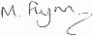 M. Flynn